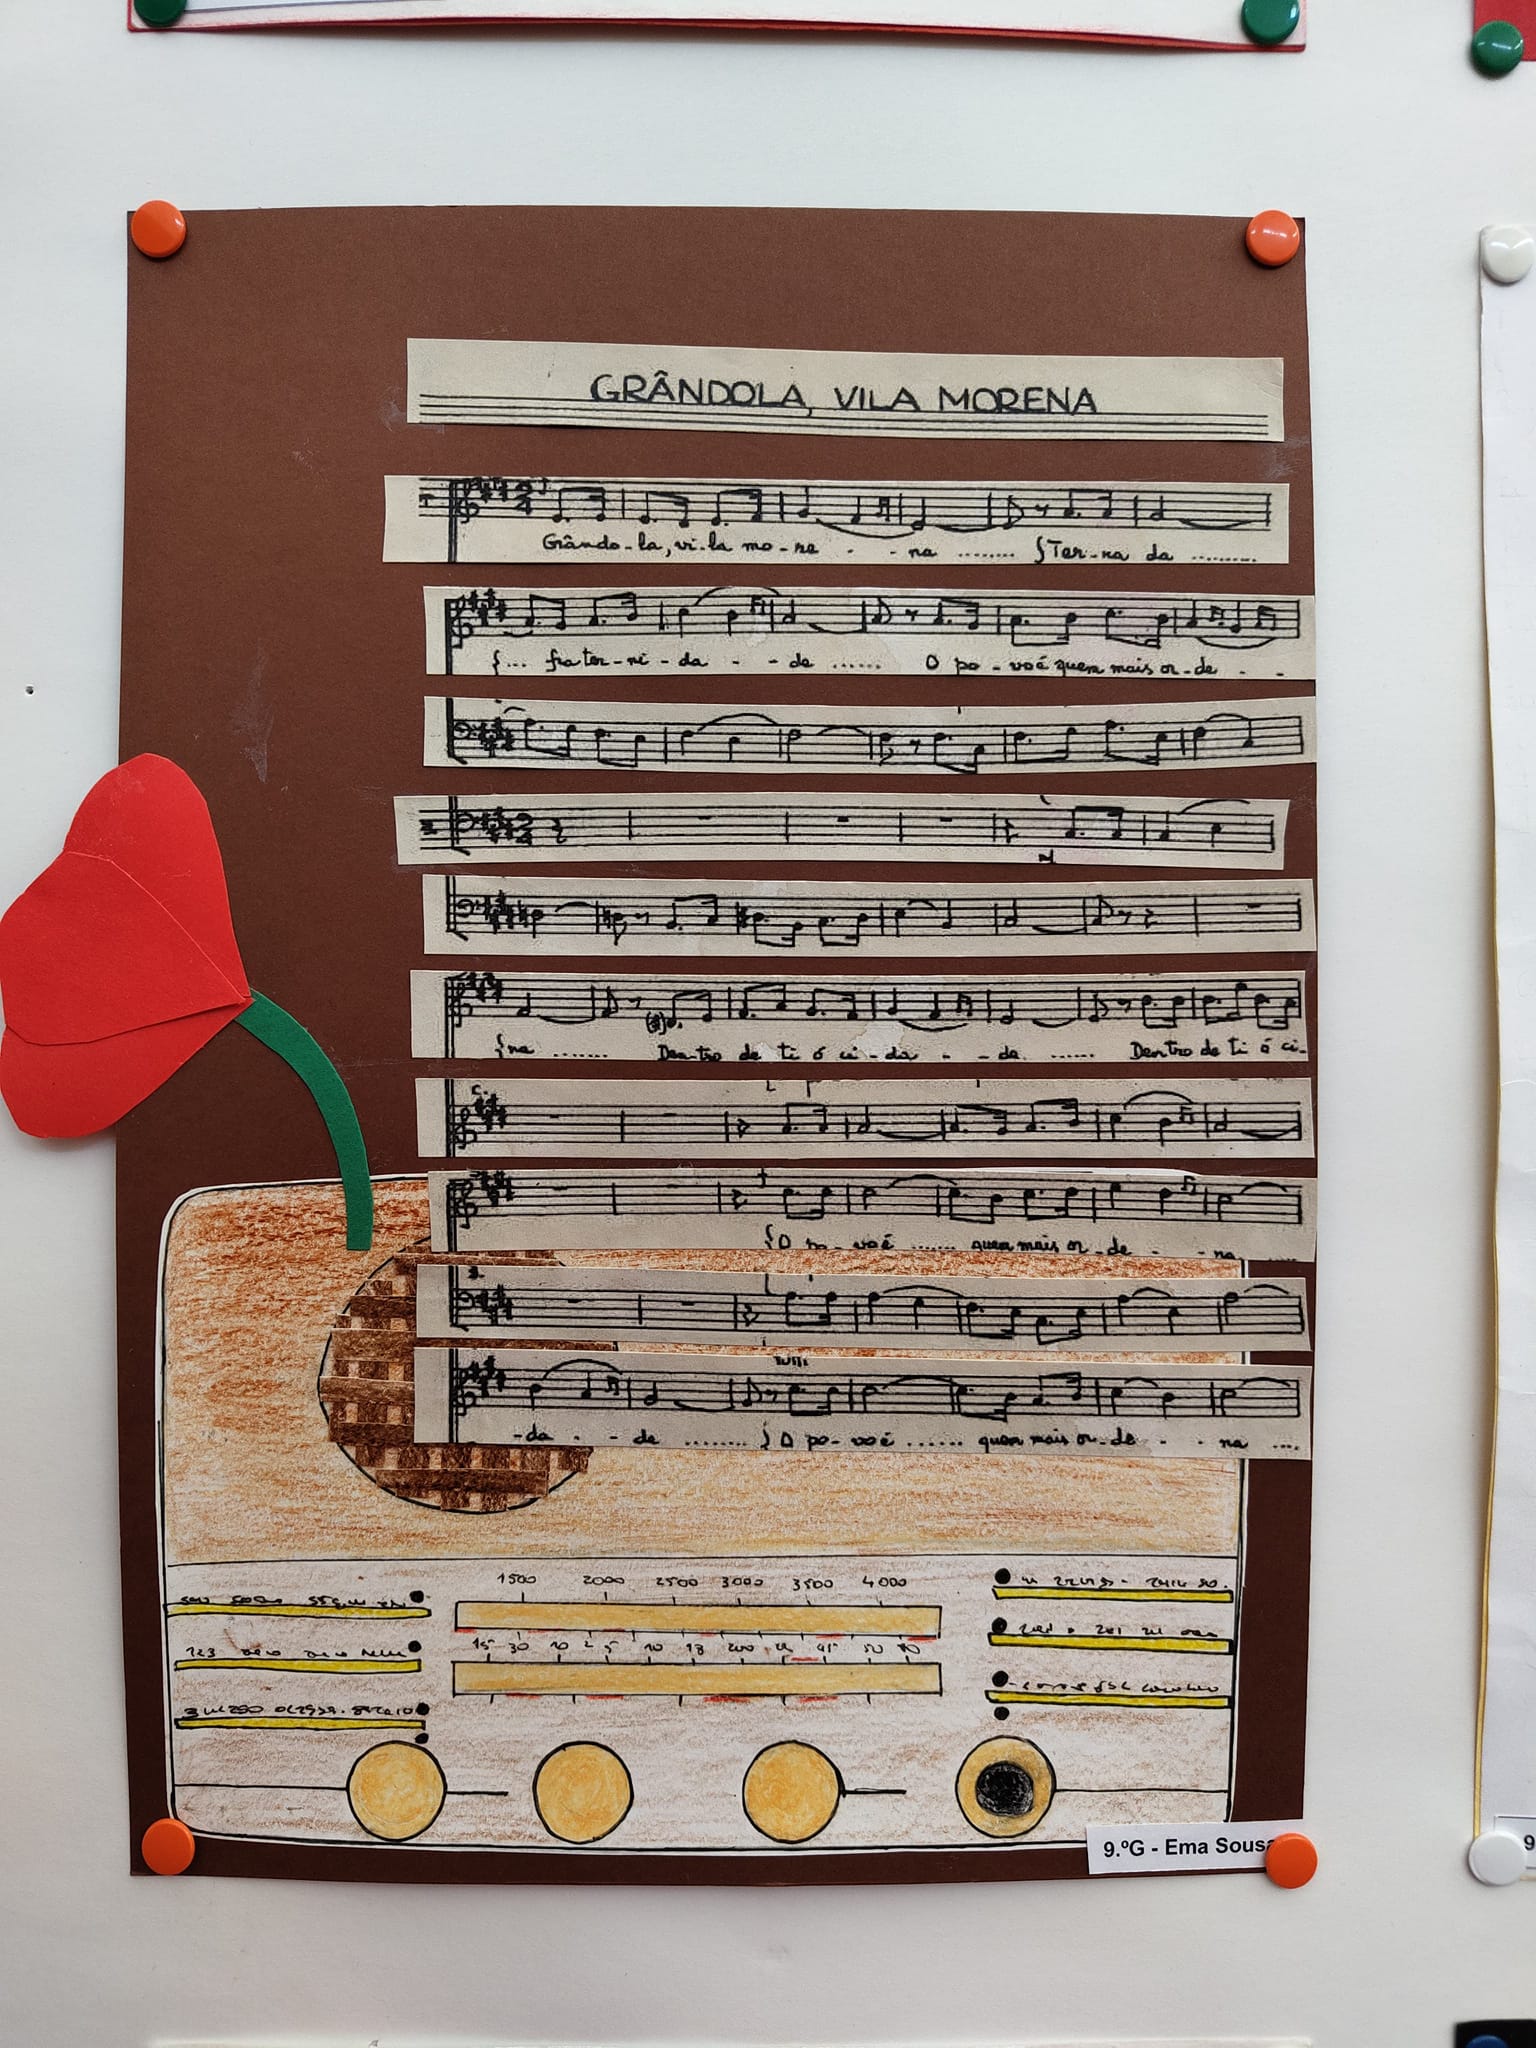 GRÂNDOLA, VILA MORENA
Grândo-la, vi-la mo-re - - na ........ {Ter-na da ..........
{... frater-ni-da - - de ...... O po-voé quem mais or-de - -
{na ....... Dentro de ti ó ci-da - - de ...... Dentro de ti ó ci-
{O po-voé ....... quem mais or-de - - na ....
Tutti
-da - - de ........ } O po-voé ...... quem mais or-de - - na ....
1500 2000 2500 3000 3500 4000
15 30 10 2 5 10 18 200
123
9.ºG - Ema Sousa
9